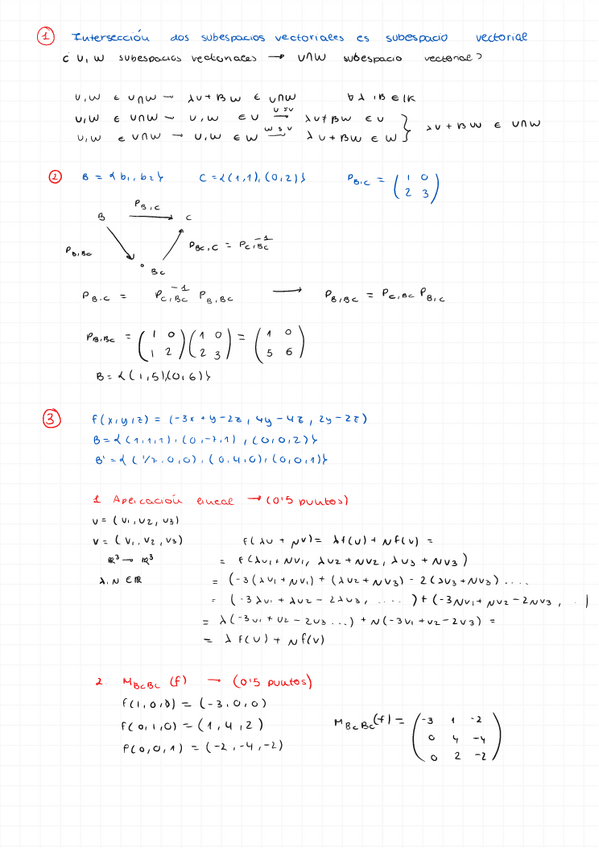 1 Intersección dos subespacios vectoriales es subespacio vectorial
¿ U, W subespacios vectoriales → U∩W subespacio vectorial?
u,w ∈ U∩W → λu + βw ∈ U∩W ∀ λ, β ∈ IK
u,w ∈ U∩W → u,w ∈ U → λu + βw ∈ U
u,w ∈ U∩W → u,w ∈ W → λu + βw ∈ W } λu + βw ∈ U∩W
2 B = {b1, b2} C = {(1,1), (0,2)} P_B,C = (1 0
2 3)
B P_B,C C
P_B,Bc P_Bc,C = P_C,Bc^-1
Bc
P_B,C = P_C,Bc^-1 P_B,Bc → P_B,Bc = P_C,Bc P_B,C
P_B,Bc = (1 0 (1 0 = (1 0
1 2) 2 3) 5 6)
B = {(1,5)(0,6)}
3 f(x,y,z) = (-3x + y - 2z, 4y - 4z, 2y - 2z)
B = {(1,1,1), (0,-7,1), (0,0,2)}
B' = {(1/7,0,0), (0,4,0), (0,0,1)}
1 Aplicación lineal → (0'5 puntos)
U = (U1, U2, U3)
V = (V1, V2, V3) f(λU + NV) = λf(U) + Nf(V) =
IR³ → IR³ = f(λU1 + NV1, λU2 + NV2, λU3 + NV3)
λ, N ∈ IR = (-3(λU1 + NV1) + (λU2 + NV3) - 2(λU3 + NV3) ....
= (-3λU1 + λU2 - 2λU3, .....) + (-3NV1 + NV2 - 2NV3, ..)
= λ(-3U1 + U2 - 2U3 ...) + N(-3V1 + V2 - 2V3) =
= λ f(U) + N f(V)
2 M_BcBc (f) → (0'5 puntos)
f(1,0,0) = (-3,0,0)
f(0,1,0) = (1,4,2) M_BcBc(f) = (-3 1 -2
f(0,0,1) = (-2,-4,-2) 0 4 -4
0 2 -2)